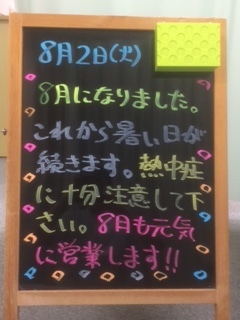 8月2日(火)
8月になりました。
これから暑い日が
続きます。熱中症
に十分注意して下
さい。8月も元気
に営業します!!